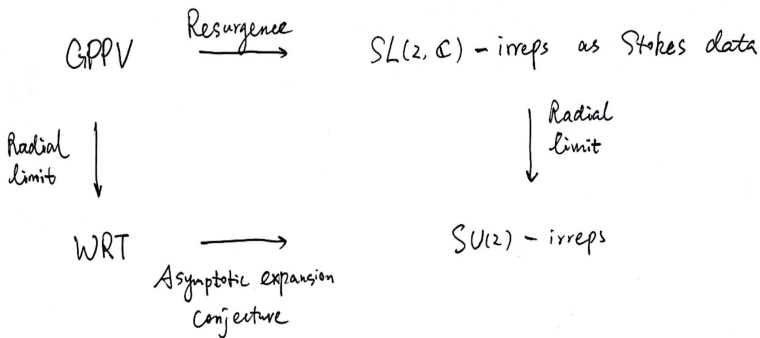 GPPV
Resurgence
SL(2, ℂ) - irreps as Stokes data
Radial
limit
Radial
limit
WRT
Asymptotic expansion
conjecture
SU(2) - irreps